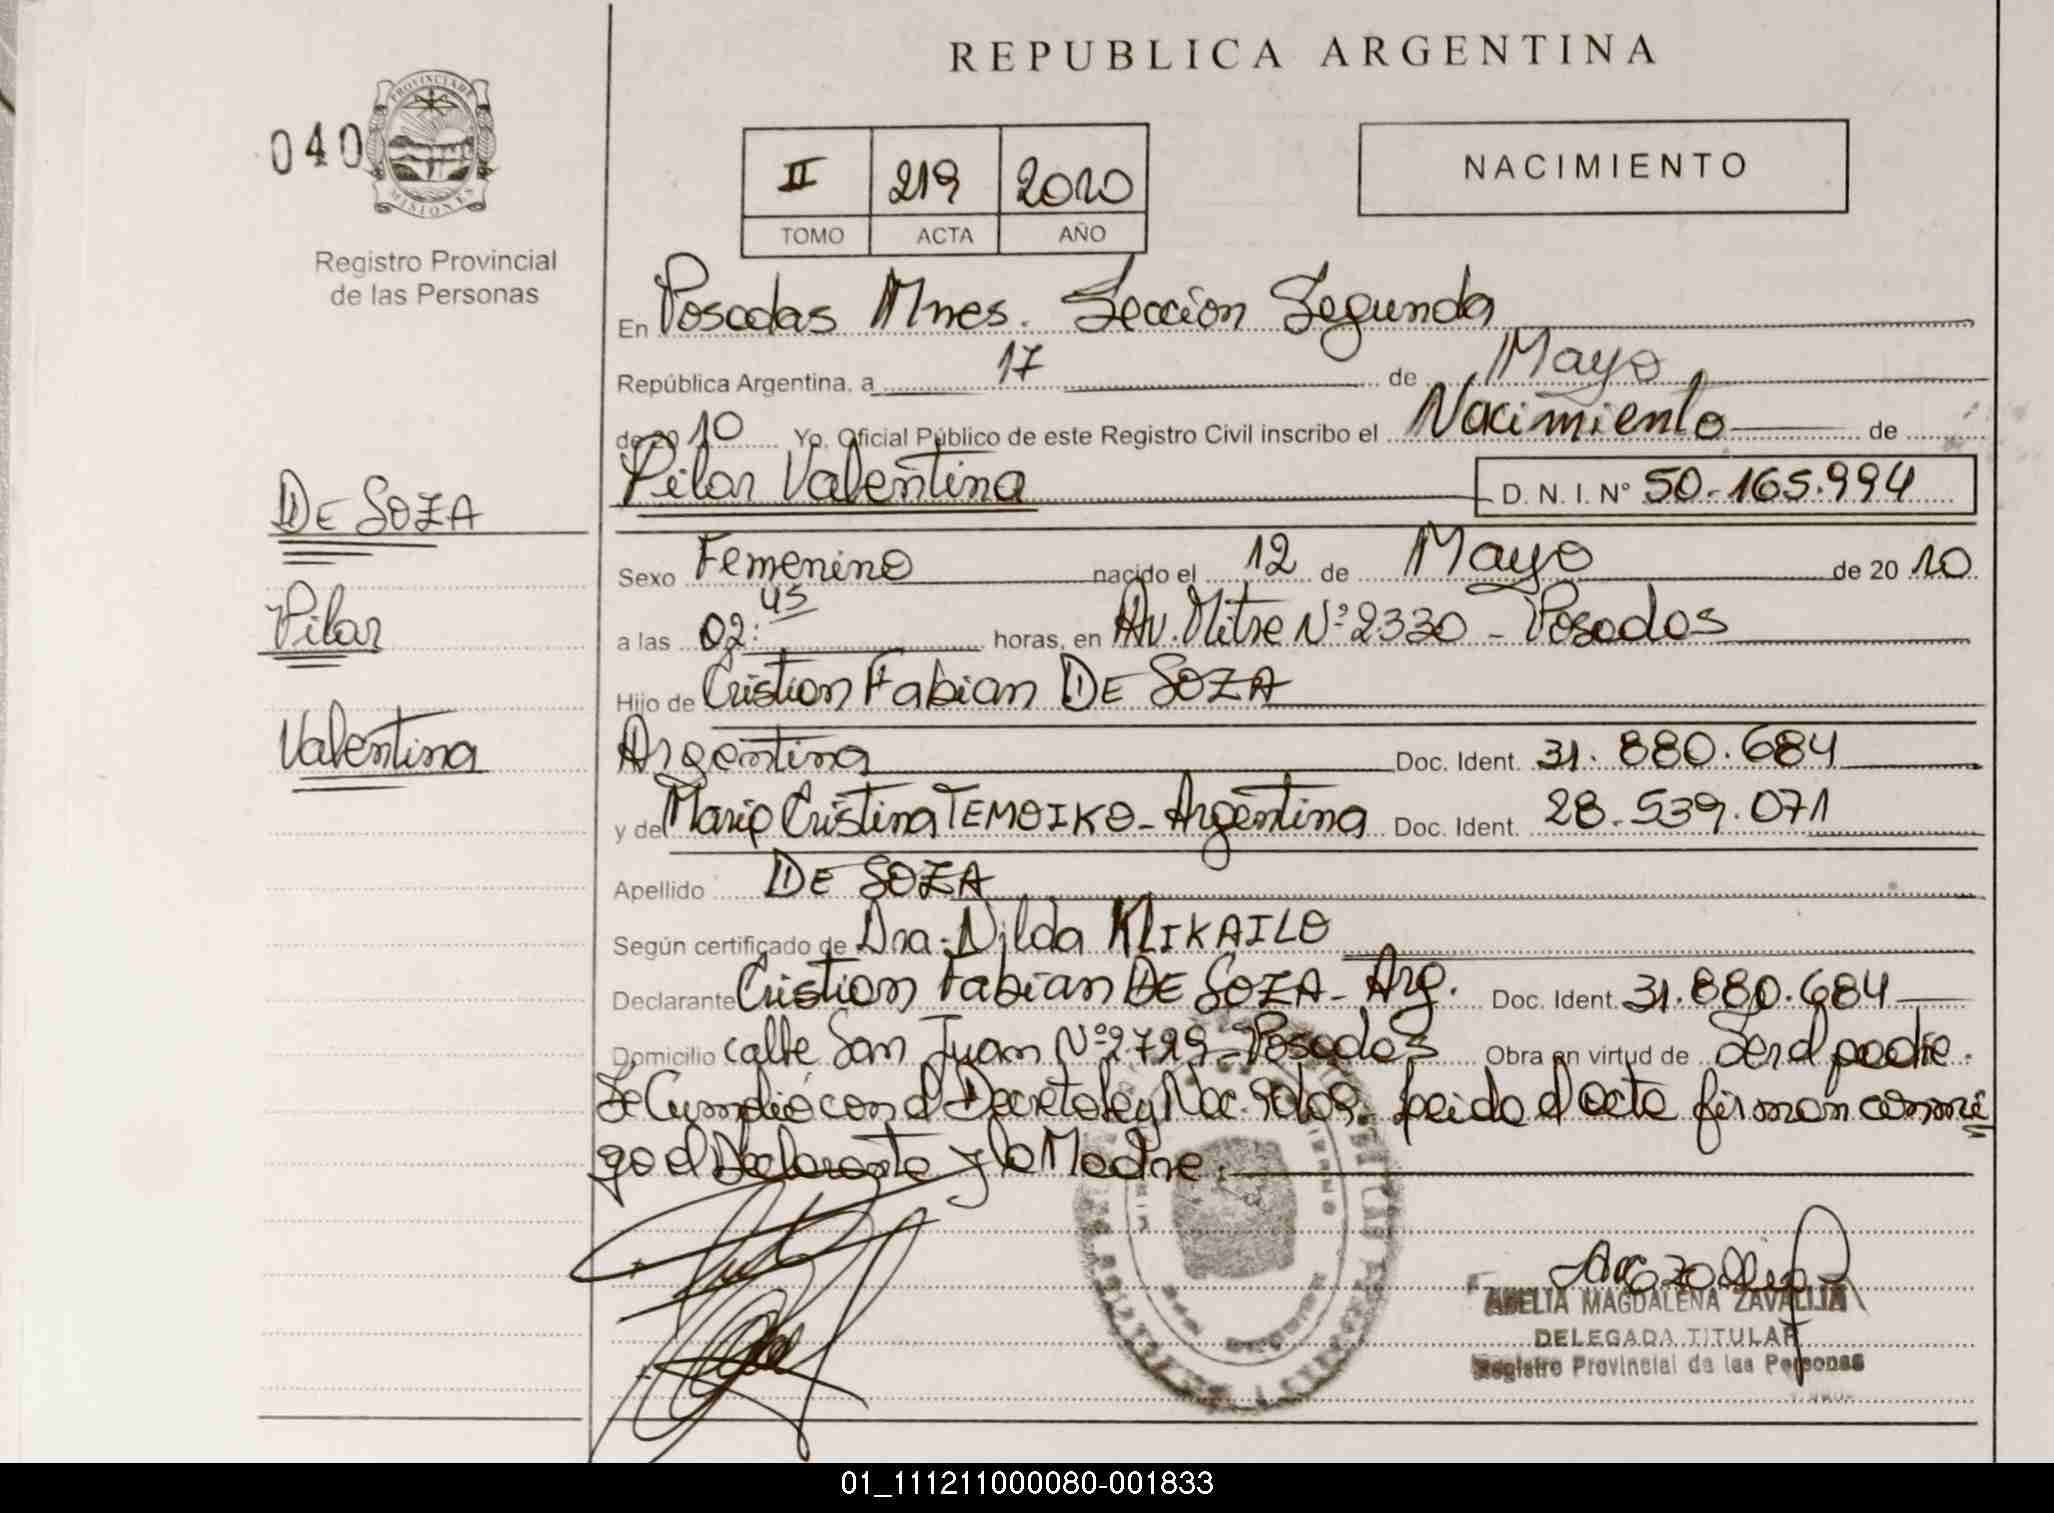 REPUBLICA ARGENTINA
040
PROVINCIA DE
MISIONES
Registro Provincial
de las Personas
II 219 2010
TOMO ACTA AÑO
NACIMIENTO
En Posadas Mnes. Sección Segunda
República Argentina, a 17 de Mayo
de 2010 Yo, Oficial Público de este Registro Civil inscribo el Nacimiento de
Pilar Valentina D. N. I. Nº 50.165.994
DE SOZA
Pilar
Valentina
Sexo Femenino nacido el 12 de Mayo de 20 10
a las 02:45 horas, en Av. Mitre Nº 2330 - Posadas
Hijo de Cristian Fabian DE SOZA
Argentina Doc. Ident. 31.880.684
y de Maria Cristina TEMOIKO - Argentina Doc. Ident. 28.539.071
Apellido DE SOZA
Según certificado de Dra. Nilda KLIKAILO
Declarante Cristian Fabian DE SOZA - Arg. Doc. Ident. 31.880.684
Domicilio calle San Juan Nº 2729 - Posadas Obra en virtud de Ser el padre.
Se Cumplió con el Decreto ley Nac. leida el acta firman conmi
go el Declarante y la Madre.
AMELIA MAGDALENA ZAVALLIA
DELEGADA TITULAR
Registro Provincial de las Personas
01_111211000080-001833